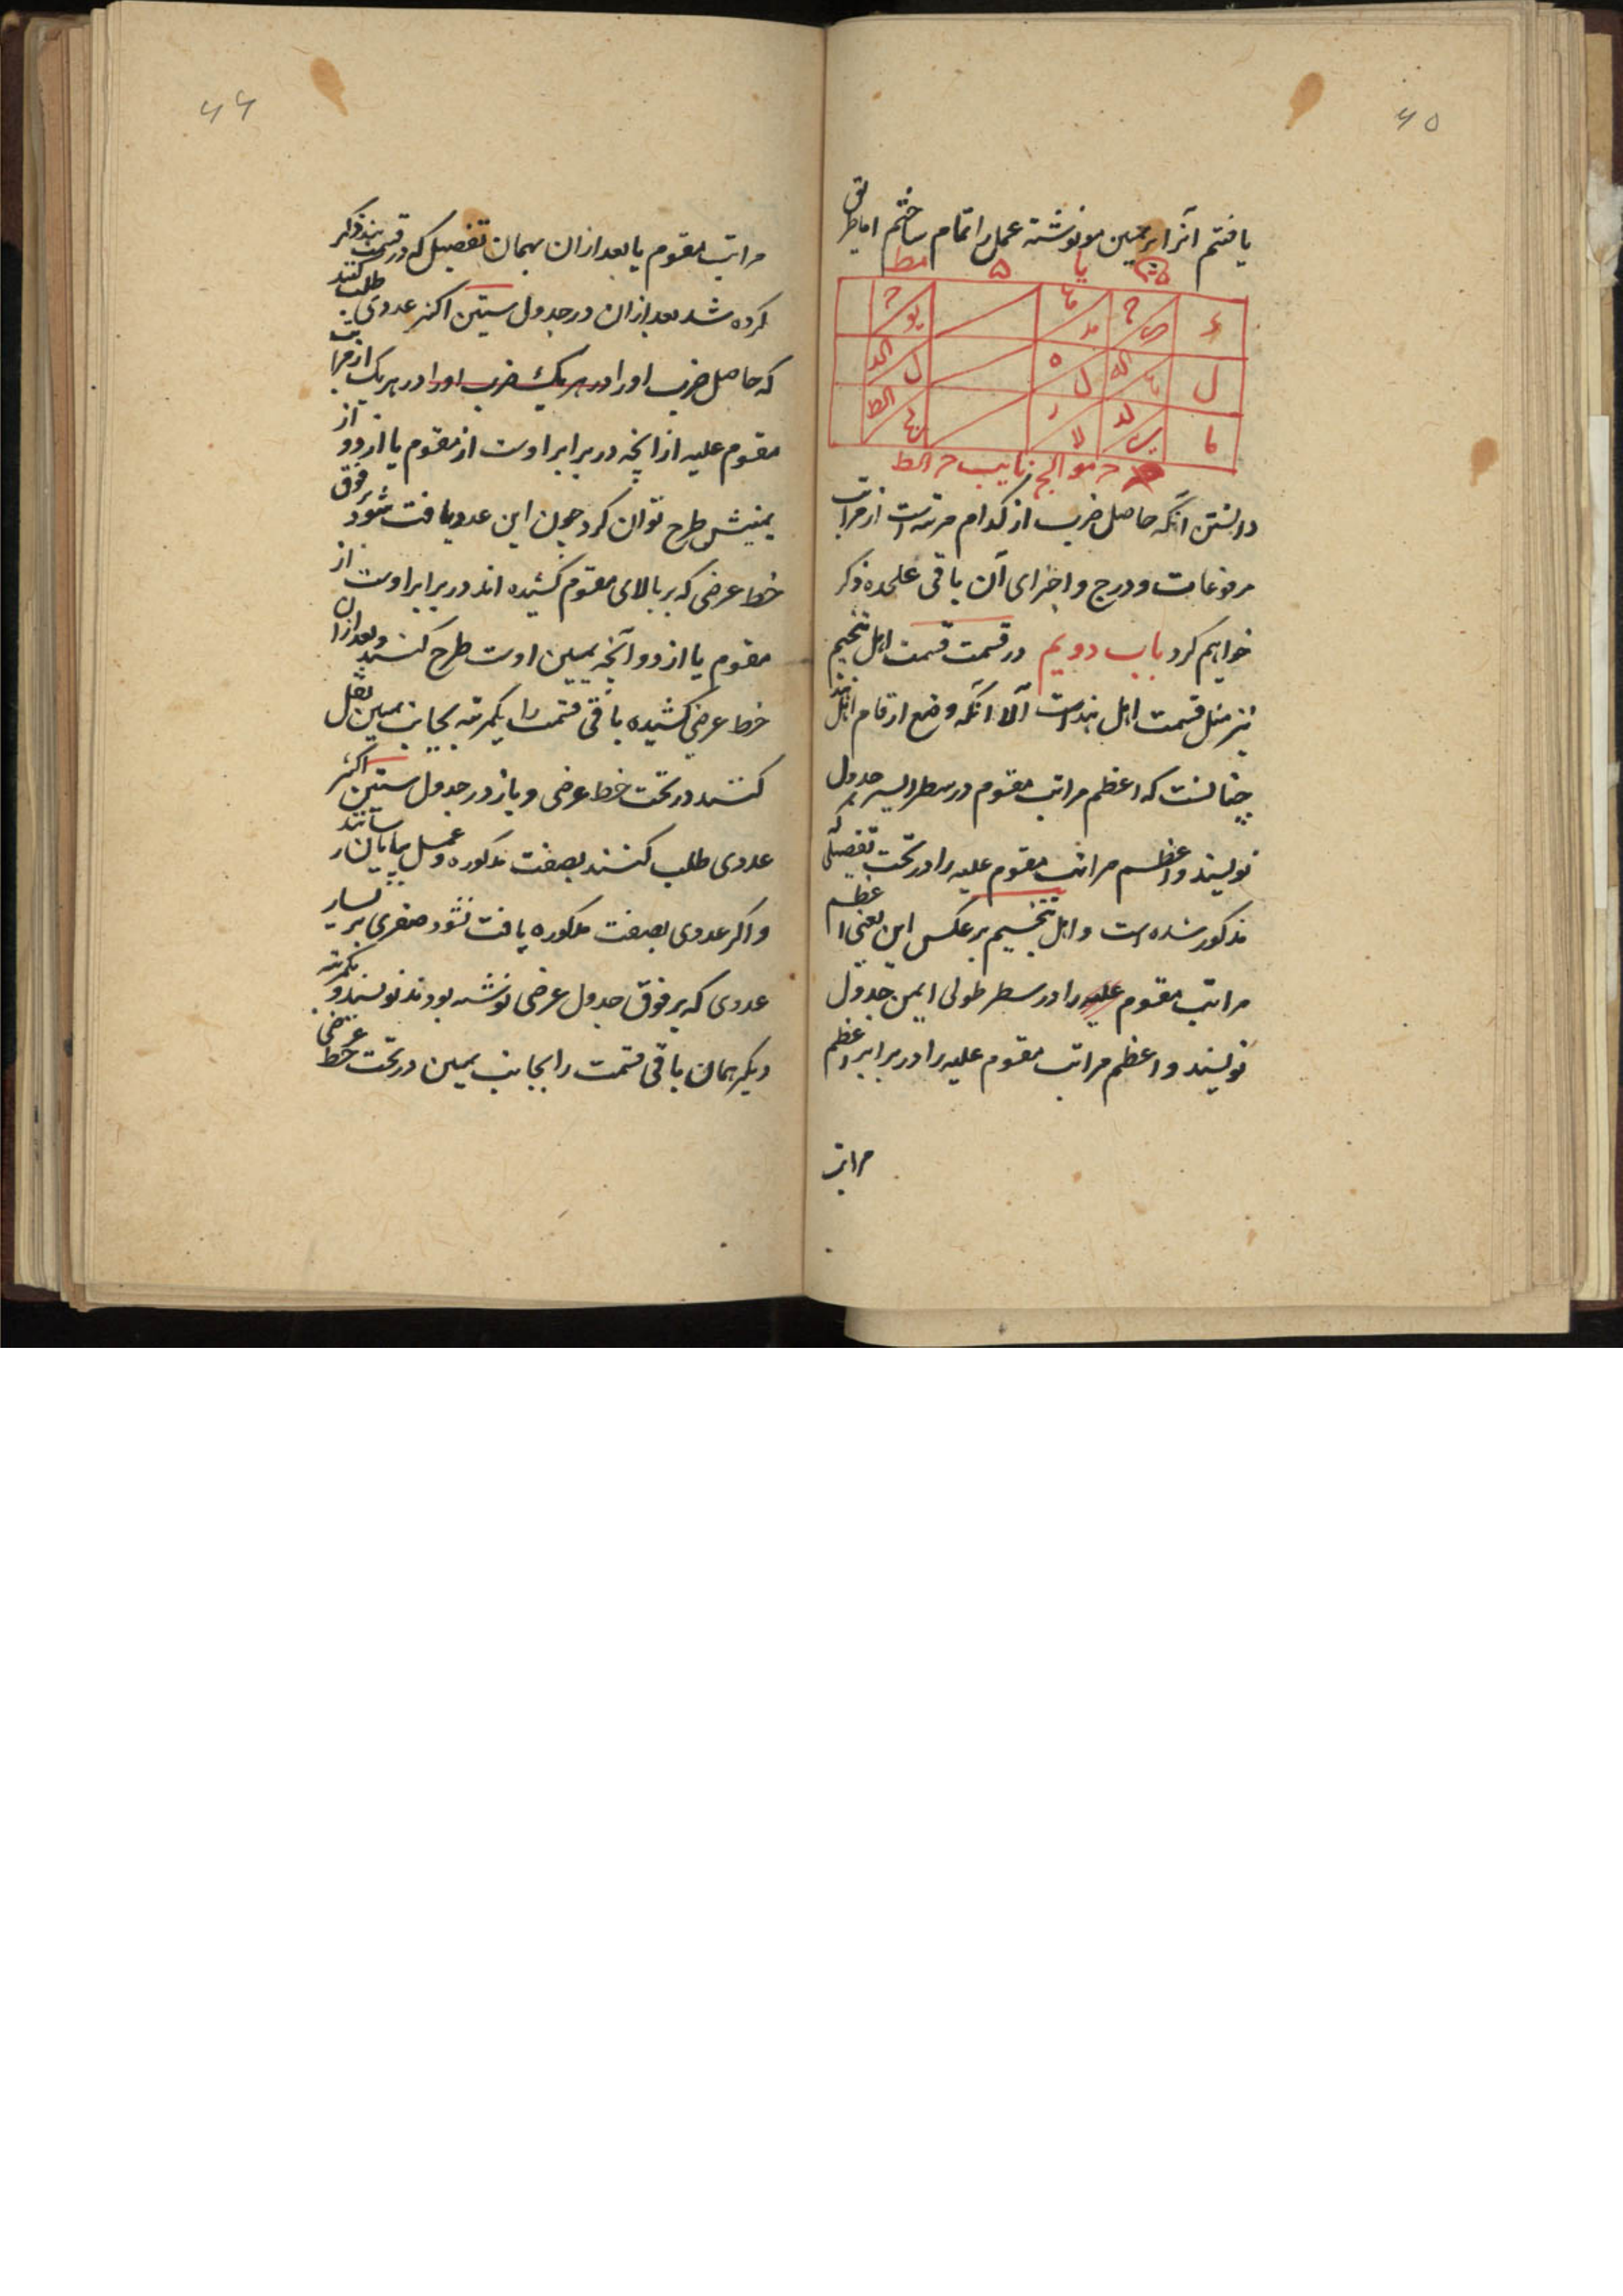 ۶۵
یافتم آنرا بر یمین مو نوشته عمل را تمام ساختم اما طریق
یا ه مط
دانستن آنکه حاصل ضرب از کدام مرتبه است از مراتب
مرفوعات و درج و اجزای آن باقی علیحده ذکر
خواهیم کرد باب دویم در قسمت قسمت اهل تنجیم
نیز مثل قسمت اهل هند است الا آنکه وضع ارقام اهل هند
چنانست که اعظم مراتب مقسوم در سطر ایسر جدول
نویسند و اعظم مراتب مقسوم علیه را در تحت تفصیلی که
مذکور شده است و اهل تنجیم بر عکس این یعنی اعظم
مراتب مقسوم علیه را در سطر طولی ایمن جدول
نویسند و اعظم مراتب مقسوم علیه را در برابر اعظم
مراتب
۶۶
مراتب مقسوم یا بعد ازان بهمان تفصیل که در قسمت هند ذکر
کرده شد بعد ازان در جدول ستین اکثر عددی طلب کنند
که حاصل ضرب او را در هر یک ضرب او را در هر یک از مراتب
مقسوم علیه از انچه در برابر اوست از مقسوم یا از دو از
یمینش طرح توان کرد چون این عدد یافت شود بر فوق
خط عرضی که بر بالای مقسوم کشیده اند در برابر اوست از
مقسوم یا از دو آنچه یمین اوست طرح کنند و بعد ازان
خط عرضی کشیده باقی قسمت را یکمرتبه بجانب یمین نقل
کنند در تحت خط عرضی و باز در جدول ستین اکثر
عددی طلب کنند بصفت مذکوره و عمل بپایان رسانند
و اکر عددی بصفت مذکوره یافت نشود صفری بر یسار
عددی که بر فوق جدول عرضی نوشته بودند نویسند و یکمرتبه
دیکر همان باقی قسمت را بجانب یمین در تحت خط عرضی